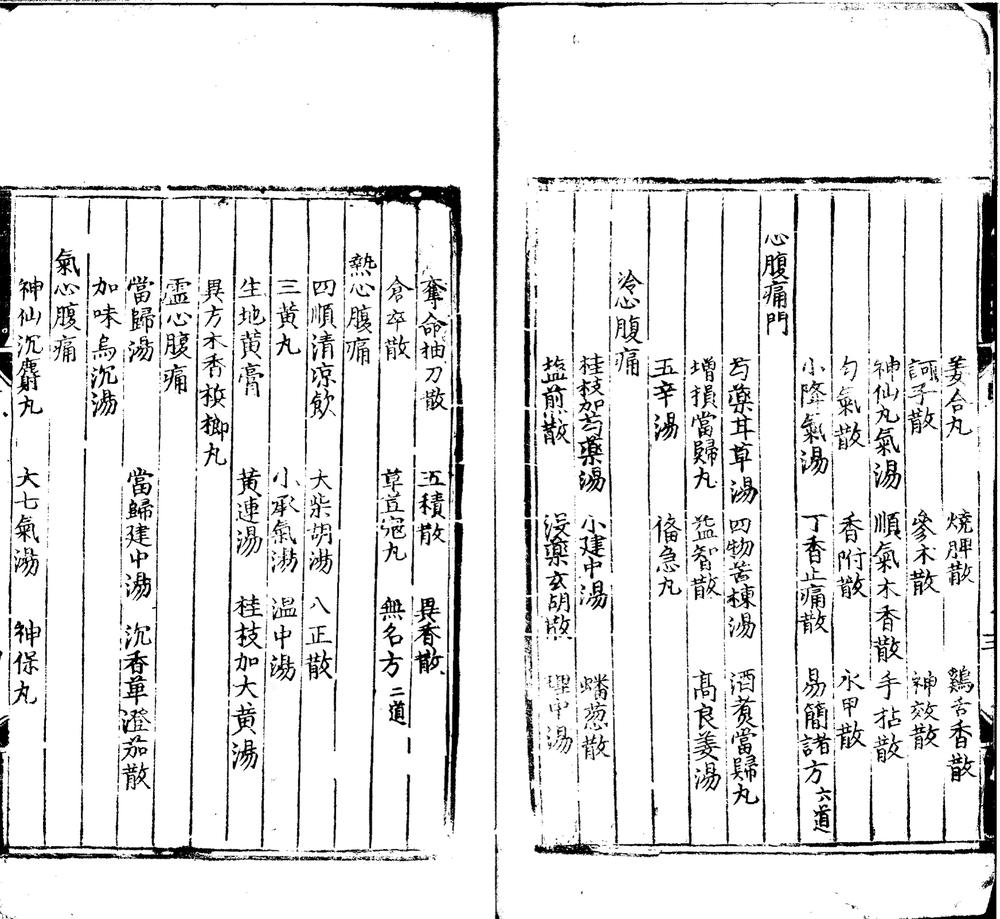 姜合丸 燒脾散 鷄舌香散
訶子散 參朮散 神效散
神仙丸氣湯 順氣木香散 手拈散
勻氣散 香附散 氷甲散
小降氣湯 丁香止痛散 易簡諸方六道
心腹痛門
芍藥甘草湯 四物苦楝湯 酒煑當歸丸
增損當歸丸 益智散 高良姜湯
五辛湯 俻急丸
冷心腹痛
桂枝加芍藥湯 小建中湯 蟠葱散
塩煎散 沒藥玄胡散 理中湯
奪命抽刀散 五積散 異香散
倉卒散 草荳蔲丸 無名方二道
熱心腹痛
四順清凉飲 大柴胡湯 八正散
三黃丸 小承氣湯 溫中湯
生地黃膏 黃連湯 桂枝加大黃湯
異方木香檳榔丸
虛心腹痛
當歸湯 當歸建中湯 沉香蓽澄茄散
加味烏沉湯
氣心腹痛
神仙沉麝丸 大七氣湯 神保丸